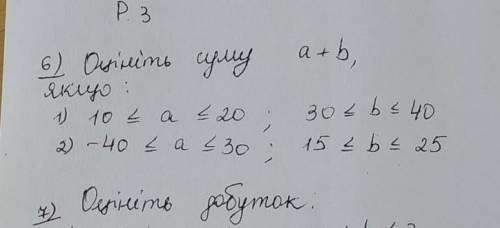 Р. 3
6) Оцініть суму a + b,
якщо:
1) 10 ≤ a ≤ 20 ; 30 ≤ b ≤ 40
2) -40 ≤ a ≤ 30 ; 15 ≤ b ≤ 25
7) Оцініть добуток: